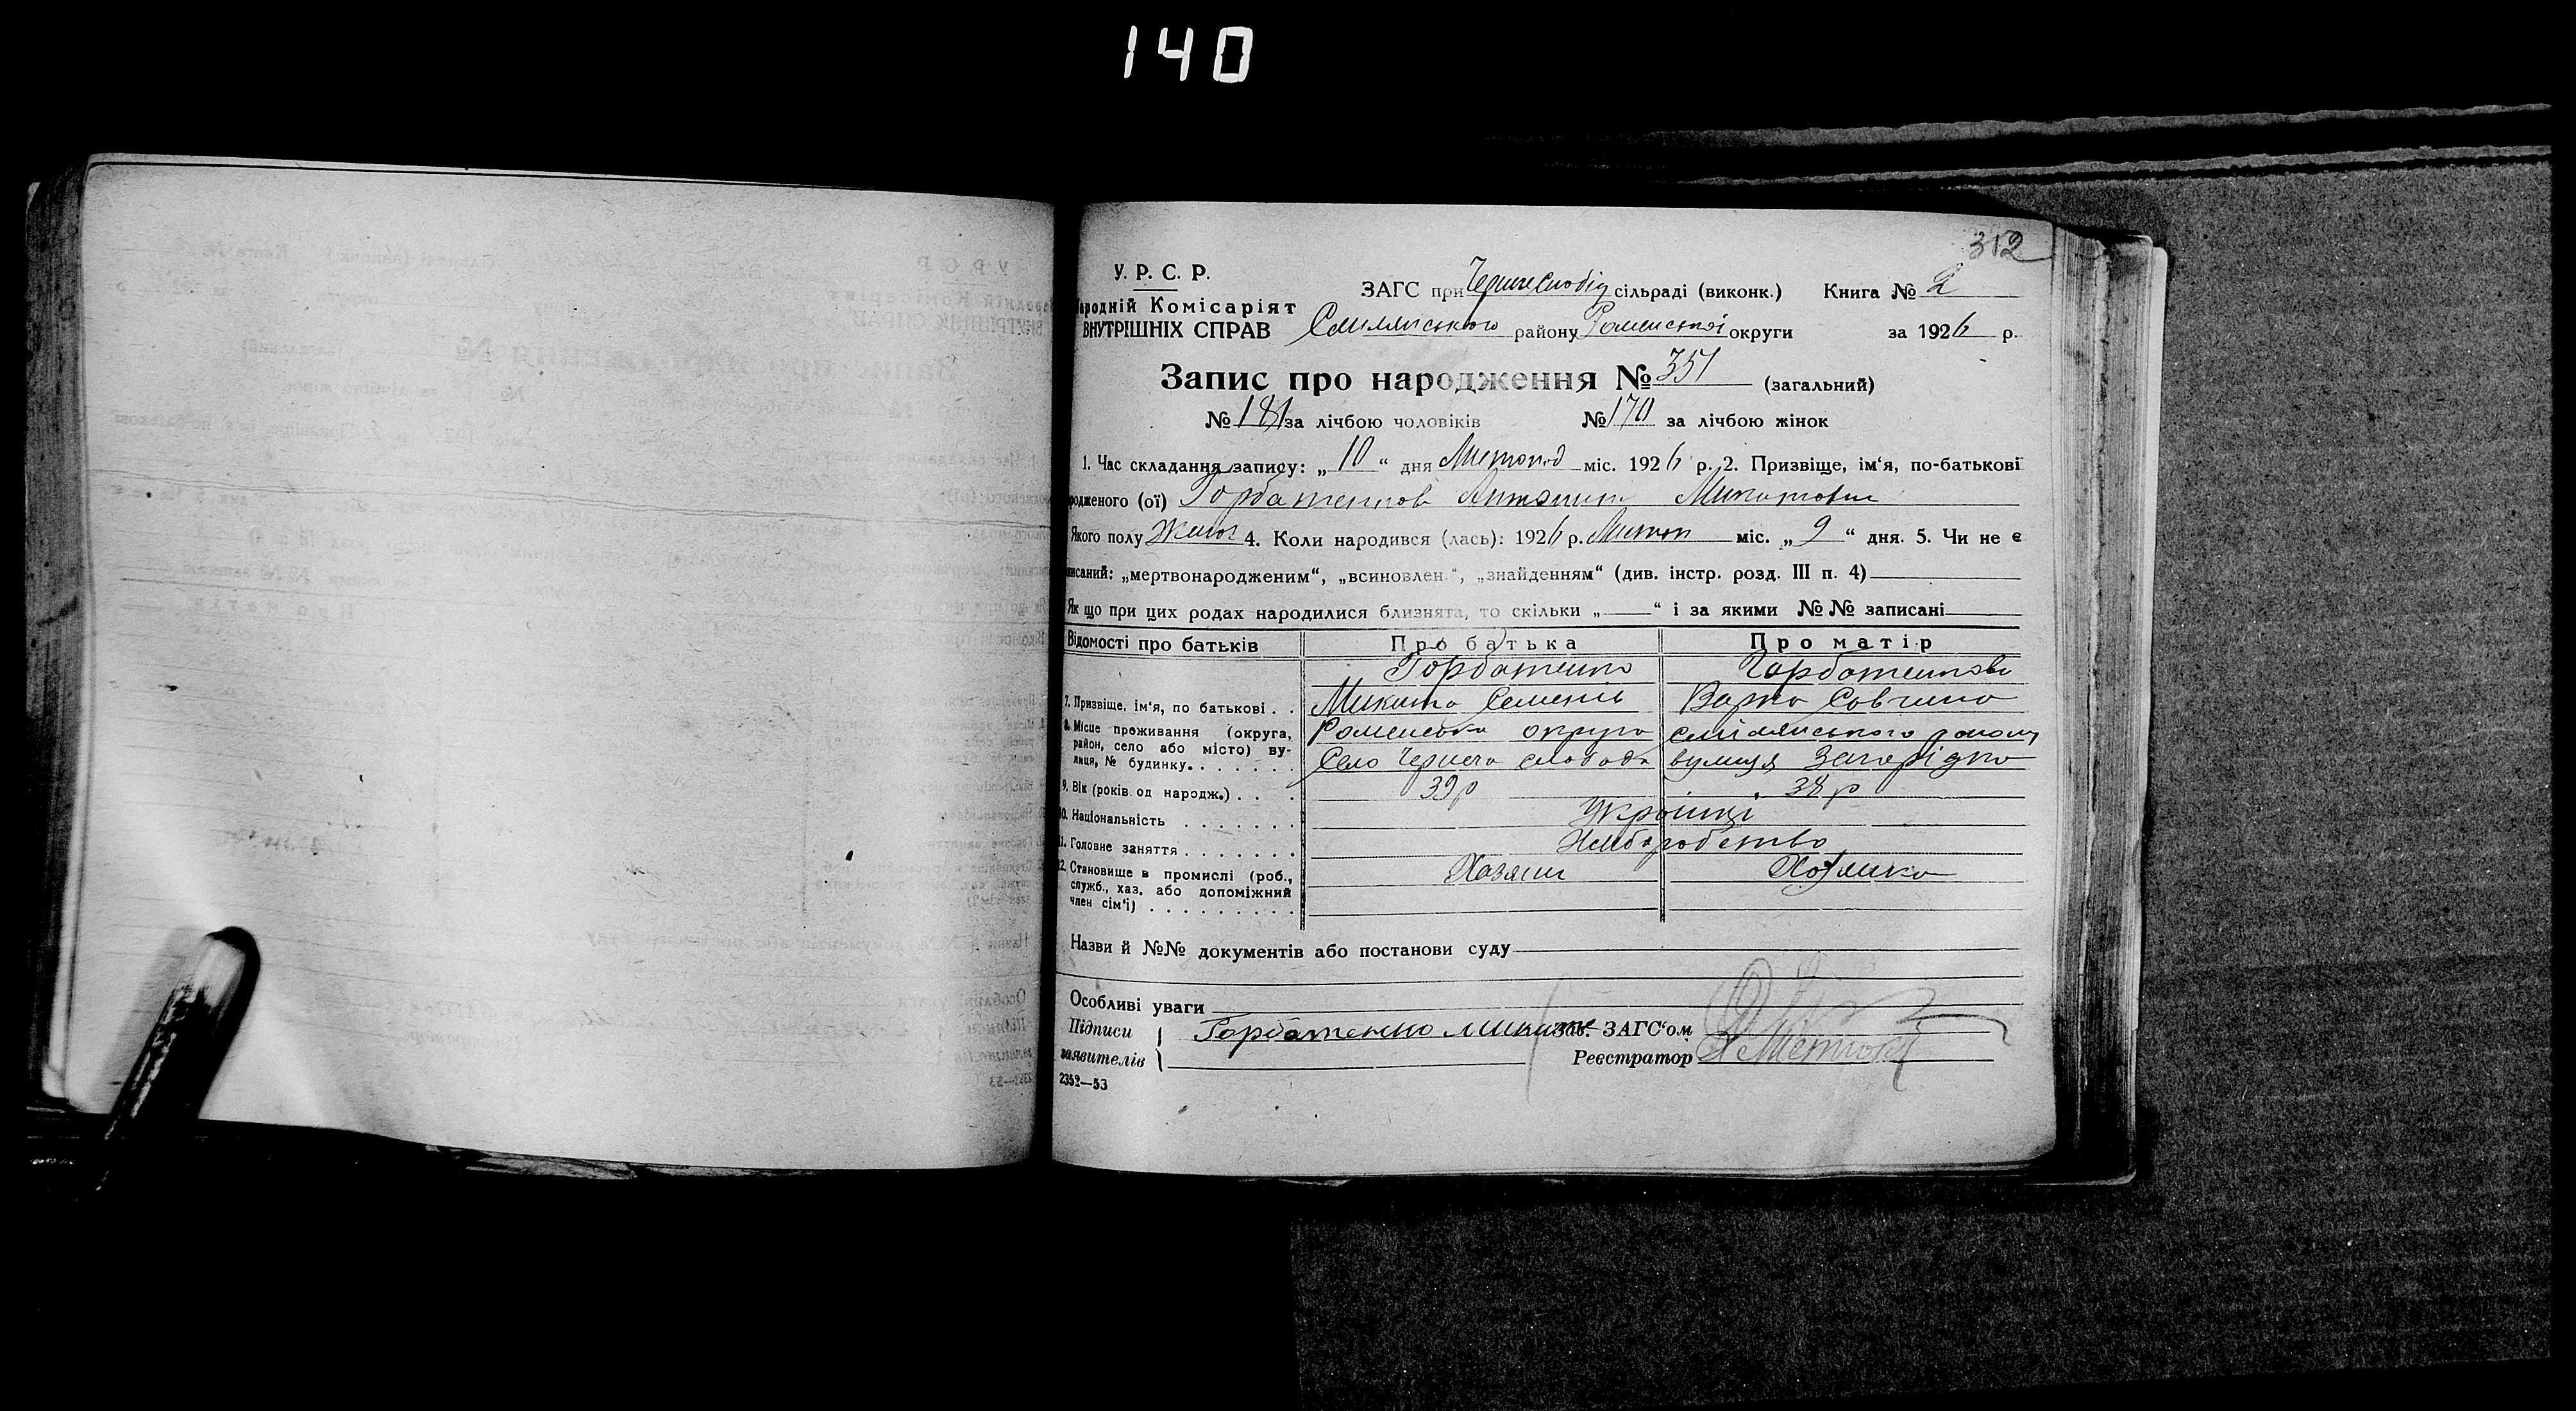 140
312
У. Р. С. Р.
ЗАГС при сільраді (виконк.) Книга № 2
ародній Комісаріят
ВНУТРІШНІХ СПРАВ Смілянського району Роменської округи за 1926 р.
Запис про народження № 351 (загальний)
№ 181 за лічбою чоловіків № 170 за лічбою жінок
1. Час складання запису: „ 10 “ дня Листопад міс. 1926 р. 2. Призвіще, ім‘я, по-батькові
родженого (ої) Горбатенкова Антонина Микитовна
Якого полу 4. Коли народився (лась): 1926 р. Листоп міс. „ 9 “ дня. 5. Чи не є
писаний: „мертвонародженим“, „всиновлен.“, „знайденням“ (див. інстр. розд. III п. 4)
Як що при цих родах народилися близнята, то скільки „ “ і за якими №№ записані
Відомості про батьків Про батька Про матір
Горбатенко Горбатенкова
7. Призвіще, ім‘я, по батькові . . Микита Семенів Варка Савчина
8. Місце проживання (округа, Роменська округа Смілянського району
район, село або місто) ву-
лиця, № будинку. . . . . . . Село Чернеча слобода вулиця
9. Вік (років од народж.) . . . 39 р 38 р
10. Національність . . . . . . . Українці
11. Головне заняття . . . . . . . Хліборобство
12. Становище в промислі (роб., Хазяин Хазяика
служб., хаз. або допоміжний
член сім‘ї) . . . . . . . . .
Назви й №№ документів або постанови суду
Особливі уваги
Підписи Горбатенко Микита Зав. ЗАГС‘ом
заявителів Реєстратор
2352—53